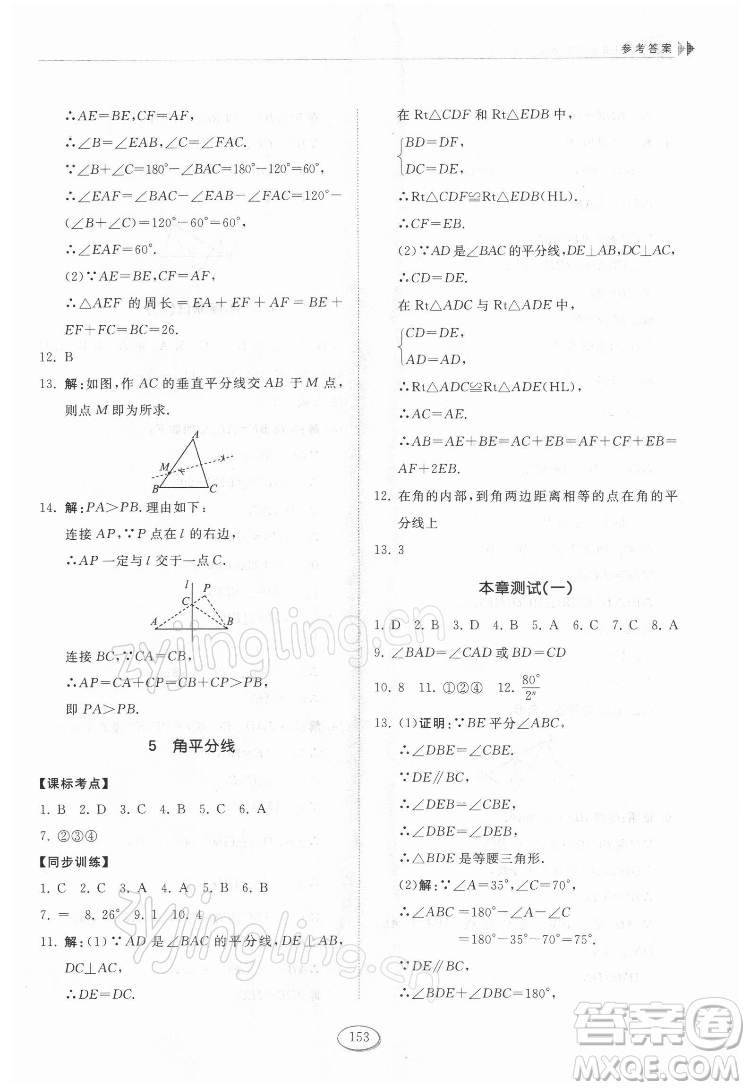 参考答案
∴AE=BE,CF=AF,
∴∠B=∠EAB,∠C=∠FAC.
∵∠B+∠C=180°-∠BAC=180°-120°=60°,
∴∠EAF=∠BAC-∠EAB-∠FAC=120°-
(∠B+∠C)=120°-60°=60°.
∴∠EAF=60°.
(2)∵AE=BE,CF=AF,
∴△AEF的周长=EA+EF+AF=BE+
EF+FC=BC=26.
12. B
13. 解:如图,作AC的垂直平分线交AB于M点,
则点M即为所求.
A
M
B
C
14. 解:PA>PB.理由如下:
连接AP,∵P点在l的右边,
∴AP一定与l交于一点C.
l
P
C
A
B
连接BC,∵CA=CB,
∴AP=CA+CP=CB+CP>PB,
即PA>PB.
5 角平分线
【课标考点】
1. B 2. D 3. C 4. B 5. C 6. A
7. ②③④
【同步训练】
1. C 2. C 3. D 4. A 5. B 6. B
7. = 8. 26° 9. 1 10. 4
11. 解:(1)∵AD是∠BAC的平分线,DE⊥AB,
DC⊥AC,
∴DE=DC.
在Rt△CDF和Rt△EDB中,
BD=DF,
DC=DE,
∴Rt△CDF≌Rt△EDB(HL).
∴CF=EB.
(2)∵AD是∠BAC的平分线,DE⊥AB,DC⊥AC,
∴CD=DE.
在Rt△ADC与Rt△ADE中,
CD=DE,
AD=AD,
∴Rt△ADC≌Rt△ADE.
∴AC=AE.
∴AB=AE+BE=AC+EB=AF+CF+EB=
AF+2EB.
12. 在角的内部,到角两边距离相等的点在角的平
分线上
13. 3
本章测试(一)
1. D 2. B 3. D 4. B 5. A 6. C 7. C 8. A
9. ∠BAD=∠CAD或BD=CD
10. 8 11. ①②④ 12. 80°/2ⁿ
13. (1)证明:∵BE平分∠ABC,
∴∠DBE=∠EBC.
∵DE∥BC,
∴∠DEB=∠EBC,
∴∠DBE=∠DEB,
∴△BDE是等腰三角形.
(2)解:∵∠A=35°,∠C=70°,
∴∠ABC=180°-∠A-∠C
=180°-35°-70°=75°.
∵DE∥BC,
∴∠BDE+∠DBC=180°,
153
zyjingling.cn
zyjingling.cn
答案卷
MXQE.COM